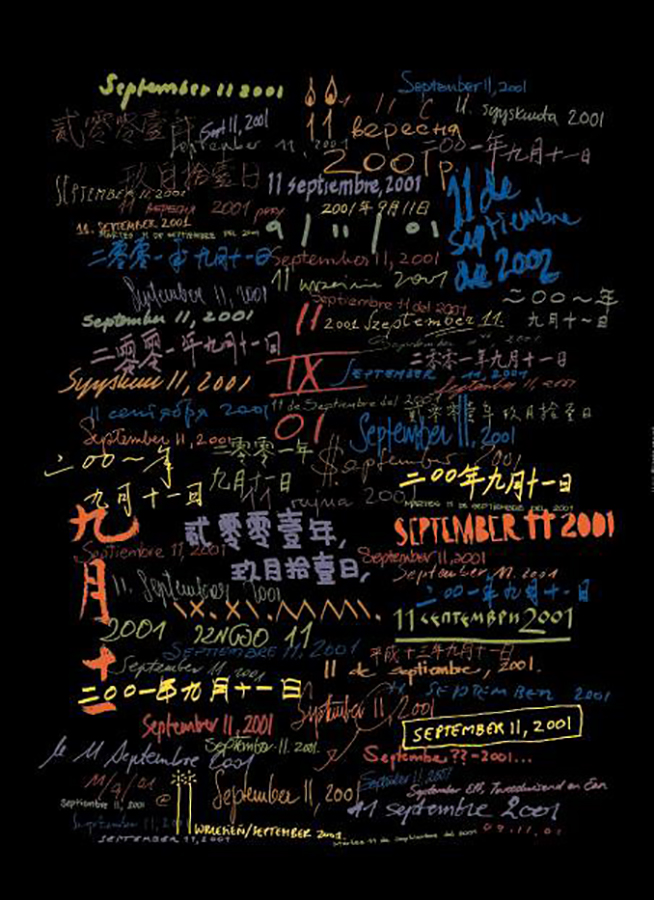 September 11 2001
September 11, 2001
11. syyskuuta 2001
貳零零壹年
Sept 11, 2001
September 11, 2001
11 вересня
2001р.
二〇〇一年九月十一日
玖月拾壹日
SEPTEMBER 11, 2001
11 septiembre, 2001
11 de
septiembre
de 2002
11 вересня 2001 року
2001年9月11日
11. SEPTEMBER 2001
MARTES 11 DE SEPTIEMBRE DEL 2001
9 | 11 | 01
二零零一年九月十一日
September 11, 2001
11 września 2001
September 11, 2001
Septiembre 11 del 2001
二〇〇一年
九月十一日
September 11, 2001
11
2001 Szeptember 11.
二零零一年九月十一日
IX
二零零一年九月十一日
SEPTEMBER 11, 2001
September 11, 2001
Syyskuu 11, 2001
11 de Septiembre del 2001
11 сентября 2001
01
貳零零壹年玖月拾壹日
September 11, 2001
September 11, 2001
二〇〇一年
九月十一日
二零零一年
九月十一日
September 2001
二〇〇年九月十一日
11 rujna 2001
MARTES 11 DE SEPTIEMBRE DEL 2001
九月十一
貳零零壹年,
玖月拾壹日,
SEPTEMBER 11 2001
Septiembre 11, 2001
September 11, 2001
11. September 2001
September 11. 2001
二〇〇一年九月十一日
IX.XI.MMI.
11 СЕПТЕМВРИ 2001
2001 11
SEPTEMBRE 11. 2001
平成十三年九月十一日
September 11. 2001
11 de septiembre, 2001.
二〇〇一年九月十一日
11 SEPTEMBER 2001
September 11, 2001
September 11, 2001
SEPTEMBER 11, 2001
September 11. 2001
le 11 Septembre 2001
September ??-2001...
11/9/01
@
September 11, 2001
September 11, 2001
September Elf, Tweeduizend en Een
septiembre 11, 2001
11 septembre 2001
September 11, 2001
/SEPTEMBER 2001.
09.11.01
SEPTEMBER 11, 2001
Martes 11 de Septiembre del 2001